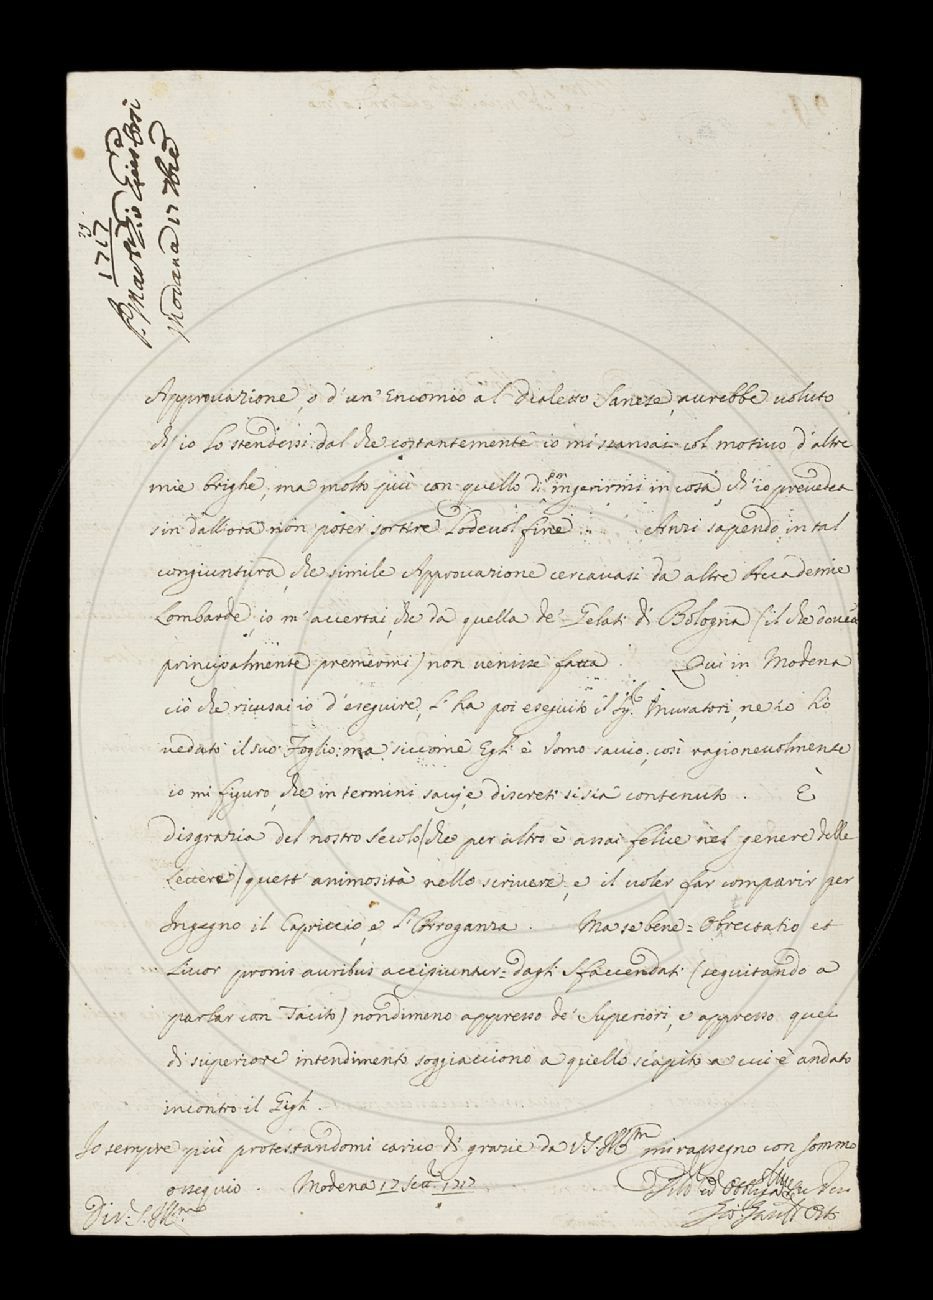 29
1717
Modana 17 7bre
Approvazione, o d'un Encomio al Dialetto Sanese, aurebbe voluto
ch'io lo stendessi: dal che costantemente io mi scansai col motivo d'altre
mie brighe; ma molto più con quello di non ingerirmi in cosa, ch'io prevedea
sin dall'ora non poter sortire lodevol fine. Anzi sapendo, in tal
congiuntura, che simile Approvazione cercavasi da altre Accademie
Lombarde, io m'accertai, che da quella de' Gelati di Bologna (il che dovea
principalmente premermi) non venisse fatta. Qui in Modena
ciò che ricusai io d'eseguire, l'ha poi eseguito il Sig.r Muratori, ne io hò
veduto il suo Foglio: ma siccome Egli è Uomo savio, così ragionevolmente
io mi figuro, che in termini savj, e discreti si sia contenuto. È
disgrazia del nostro secolo (che per altro è assai felice nel genere delle
Lettere) quest'animosità nello scrivere, e il voler far comparir per
Ingegno il Capriccio, e l'Arroganza. Ma se bene = Obtrectatio et
Livor pronis auribus accipiuntur = dagli sfaccendati (seguitando a
parlar con Tacito) nondimeno appresso de' Superiori, e appresso quei
di superiore intendimento soggiacciono a quello scapito a cui è andato
incontro il Gigli.
Io sempre più protestandomi carico di grazie da V.S. Ill.ma mi rassegno con sommo
ossequio. Modena 17 Sett. 1717
Di V. S. Ill.ma